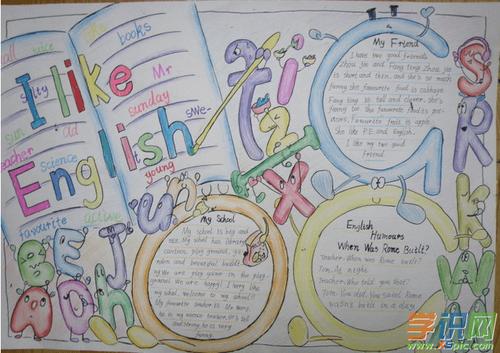 all
nice
the
books
salty
I like
Mr
sunday
sun
ad
English
swe-
teacher
science
young
favourite
active
My Friend
I have two good friends
Zhou jie and Fang ting Zhou jie
is short and thin, and she's so math
funny she favourite food is cabbage
Fang ting is tall and clever, she's
funny too. She favourite
Favourite fruit is apple
She like P.E and English.
I like my two good
friend
My School
My school is big and
nice My school has library
canteen, play ground,
and beautiful
We are play game in the play
ground We are happy! I very like
my school welcome to my school!
My favourite
tall
and strong he is very
funny.
English
Humours
When Was Rome Built?
Teacher: When was Rome built?
Tom: At night.
Teacher: Who told you that?
Tom: You did. You said Rome
wasn't built in a day.
学识网
www.xspic.com